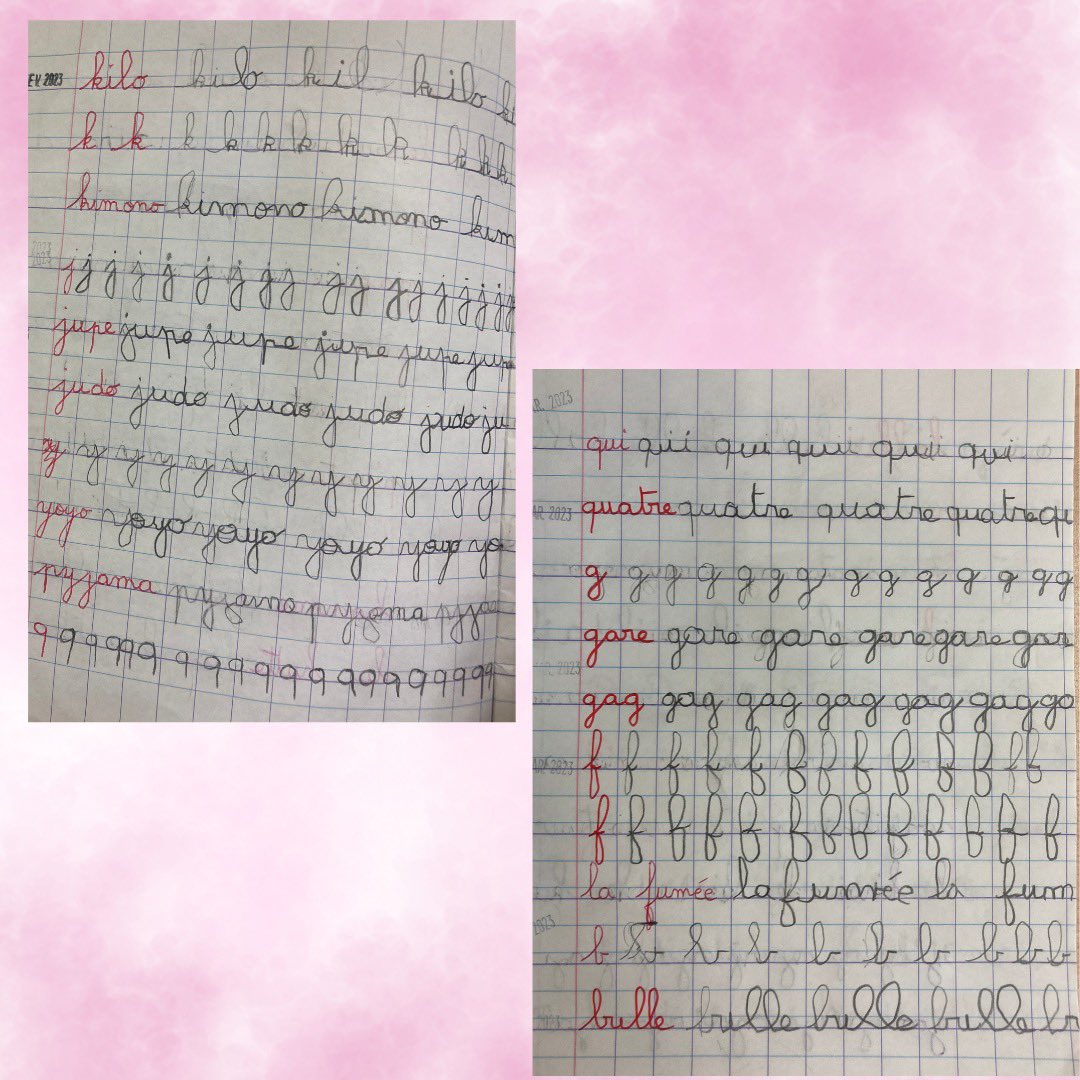 EV. 2023 kilo kilo kil kilo ki
k k k k k k k k k k k
kimono kimono kimono kim
2023
2023
j j j j j j j j j j j j j j j j j
jupe jupe jupe jupe jupe jupe
judo judo judo judo judo ju
y y y y y y y y y y y y
yoyo yoyo yoyo yoyo yoyo yo
pyjama pyjama pyjama pyja
q q q q q q q q q q q q q q q q q q q
R. 2023
qui qui qui qui quii qui
AR. 2023 quatre quatre quatre quatre qu
g g g g g g g g g g g g g
gare gare gare gare gare gar
2023
gag gag gag gag gag gag ga
AR. 2023 f f f f f f f f f f f f f
f f f f f f f f f f f f f
la fumée la fumée la fum
2023
b b b b b b b b b b
bulle bulle bulle bulle b